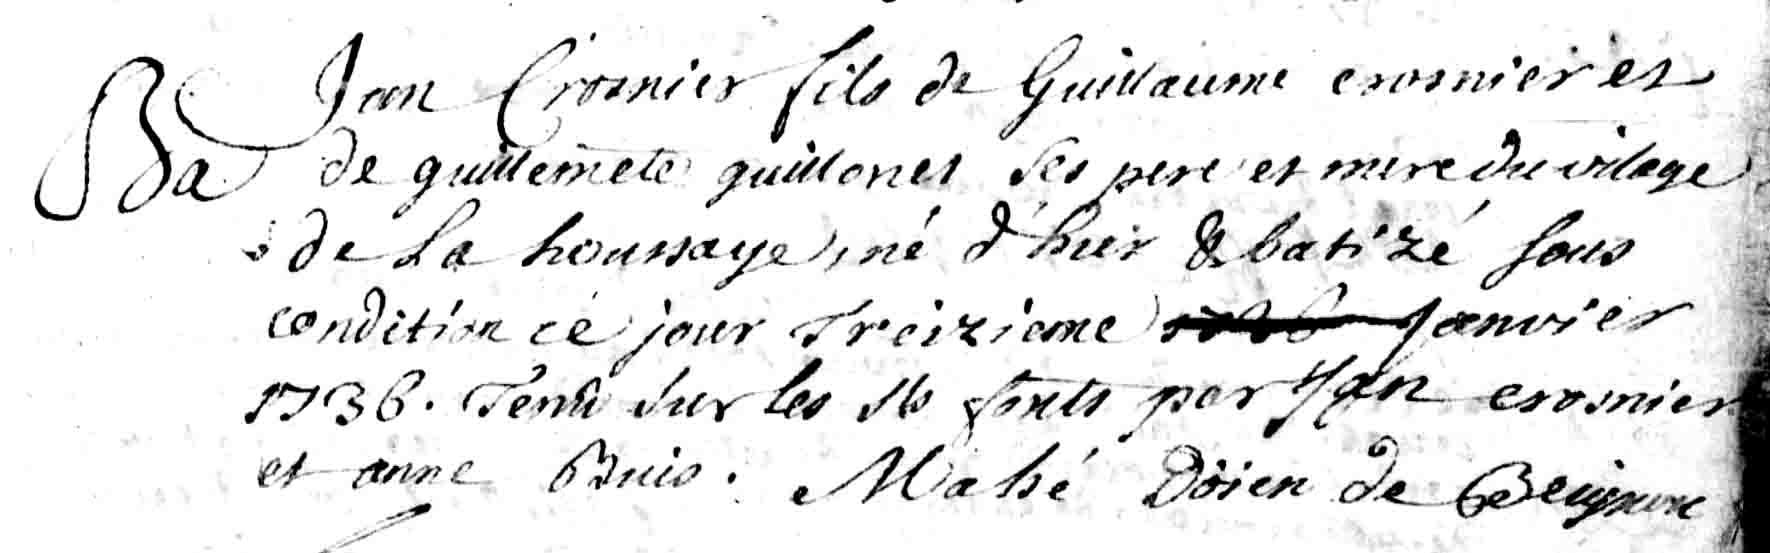 Ba Jan Crosnier fils de Guillaume crosnier et
de guillemete guillonet ses pere et mere du vilage
de La houssaye, né d'hier & batizé sous
condition cé jour Treizieme Janvier
1736. Tenu sur les sts fonts par Jan crosnier
et anne Buis. Mahé Döien de Beignon